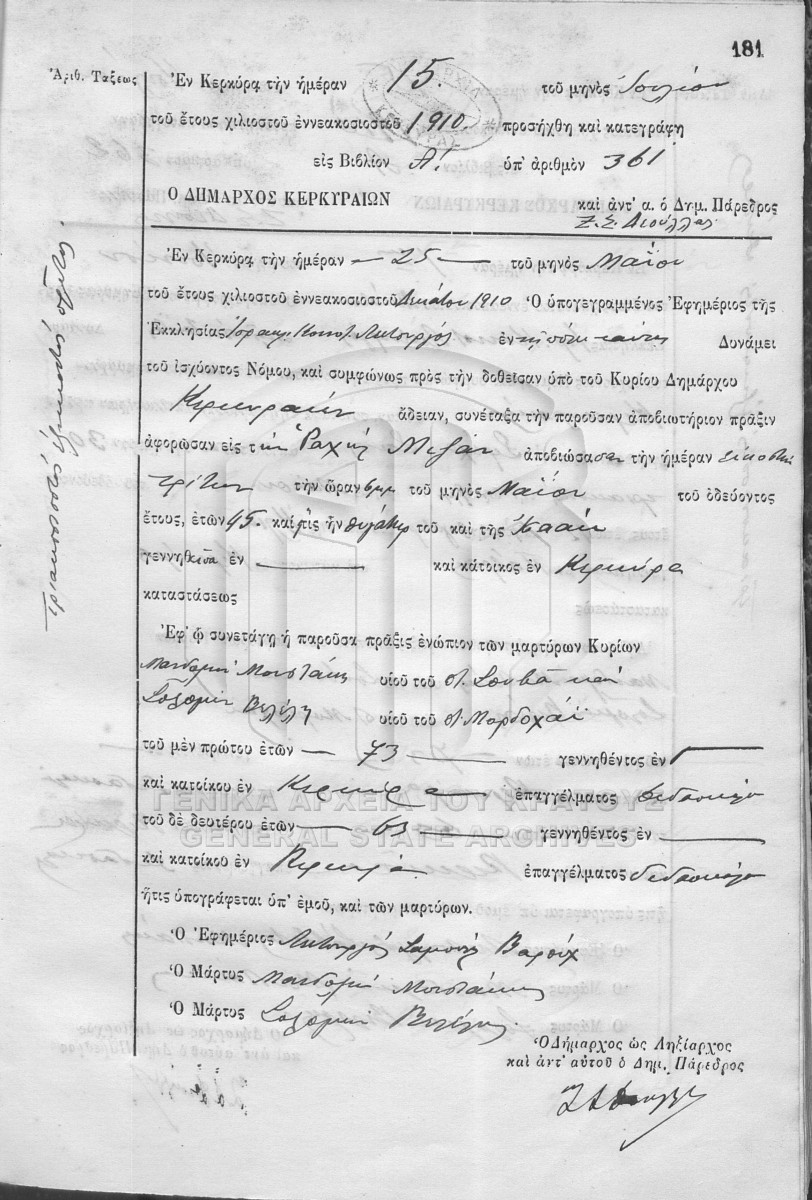 181
Ἀριθ. Τάξεως
Ἐν Κερκύρᾳ τὴν ἡμέραν 15. τοῦ μηνὸς Ἰουλίου
τοῦ ἔτους χιλιοστοῦ ἐννεακοσιοστοῦ 1910. προσήχθη καὶ κατεγράφη
εἰς Βιβλίον Α! ὑπ' ἀριθμὸν 361
Ο ΔΗΜΑΡΧΟΣ ΚΕΡΚΥΡΑΙΩΝ καὶ ἀντ' α. ὁ Δημ. Πάρεδρος
Ἐν Κερκύρᾳ τὴν ἡμέραν — 25 — τοῦ μηνὸς Μαΐου
τοῦ ἔτους χιλιοστοῦ ἐννεακοσιοστοῦ δεκάτου 1910 Ὁ ὑπογεγραμμένος Ἐφημέριος τῆς
Ἐκκλησίας Ἰσραηλ. Κοινότ. Λειτουργὸς ἐν Δυνάμει
τοῦ ἰσχύοντος Νόμου, καὶ συμφώνως πρὸς τὴν δοθεῖσαν ὑπὸ τοῦ Κυρίου Δημάρχου
Κερκυραίων ἄδειαν, συνέταξα τὴν παροῦσαν ἀποβιωτήριον πρᾶξιν
ἀφορῶσαν εἰς τὴν Ῥαχὴλ Μιζὰν ἀποβιώσασαν τὴν ἡμέραν εἰκοστὴν
τρίτην τὴν ὥραν 6 μμ τοῦ μηνὸς Μαΐου τοῦ ὁδεύοντος
ἔτους, ἐτῶν 45. καὶ ἥτις ἦν θυγάτηρ τοῦ καὶ τῆς Ἰσαὰκ
γεννηθεῖσα ἐν — καὶ κάτοικος ἐν Κερκύρᾳ
καταστάσεως
Ἐφ' ᾧ συνετάγη ἡ παροῦσα πρᾶξις ἐνώπιον τῶν μαρτύρων Κυρίων
Μουστάκη υἱοῦ τοῦ
Σολομὼν Βελέλη υἱοῦ τοῦ Μορδοχάϊ
τοῦ μὲν πρώτου ἐτῶν — 73 — γεννηθέντος ἐν —
καὶ κατοίκου ἐν Κερκύρᾳ ἐπαγγέλματος διδασκάλου
τοῦ δὲ δευτέρου ἐτῶν — 63 — γεννηθέντος ἐν —
καὶ κατοίκου ἐν Κερκύρᾳ ἐπαγγέλματος διδασκάλου
ἥτις ὑπογράφεται ὑπ' ἐμοῦ, καὶ τῶν μαρτύρων.
Ὁ Ἐφημέριος Λειτουργὸς Σαμουὴλ Βαροὺχ
Ὁ Μάρτυς Μουστάκης
Ὁ Μάρτυς Σολομὼν Βελέλης
Ὁ Δήμαρχος ὡς Ληξίαρχος
καὶ ἀντ' αὐτοῦ ὁ Δημ. Πάρεδρος
ΓΕΝΙΚΑ ΑΡΧΕΙΑ ΤΟΥ ΚΡΑΤΟΥΣ
GENERAL STATE ARCHIVES